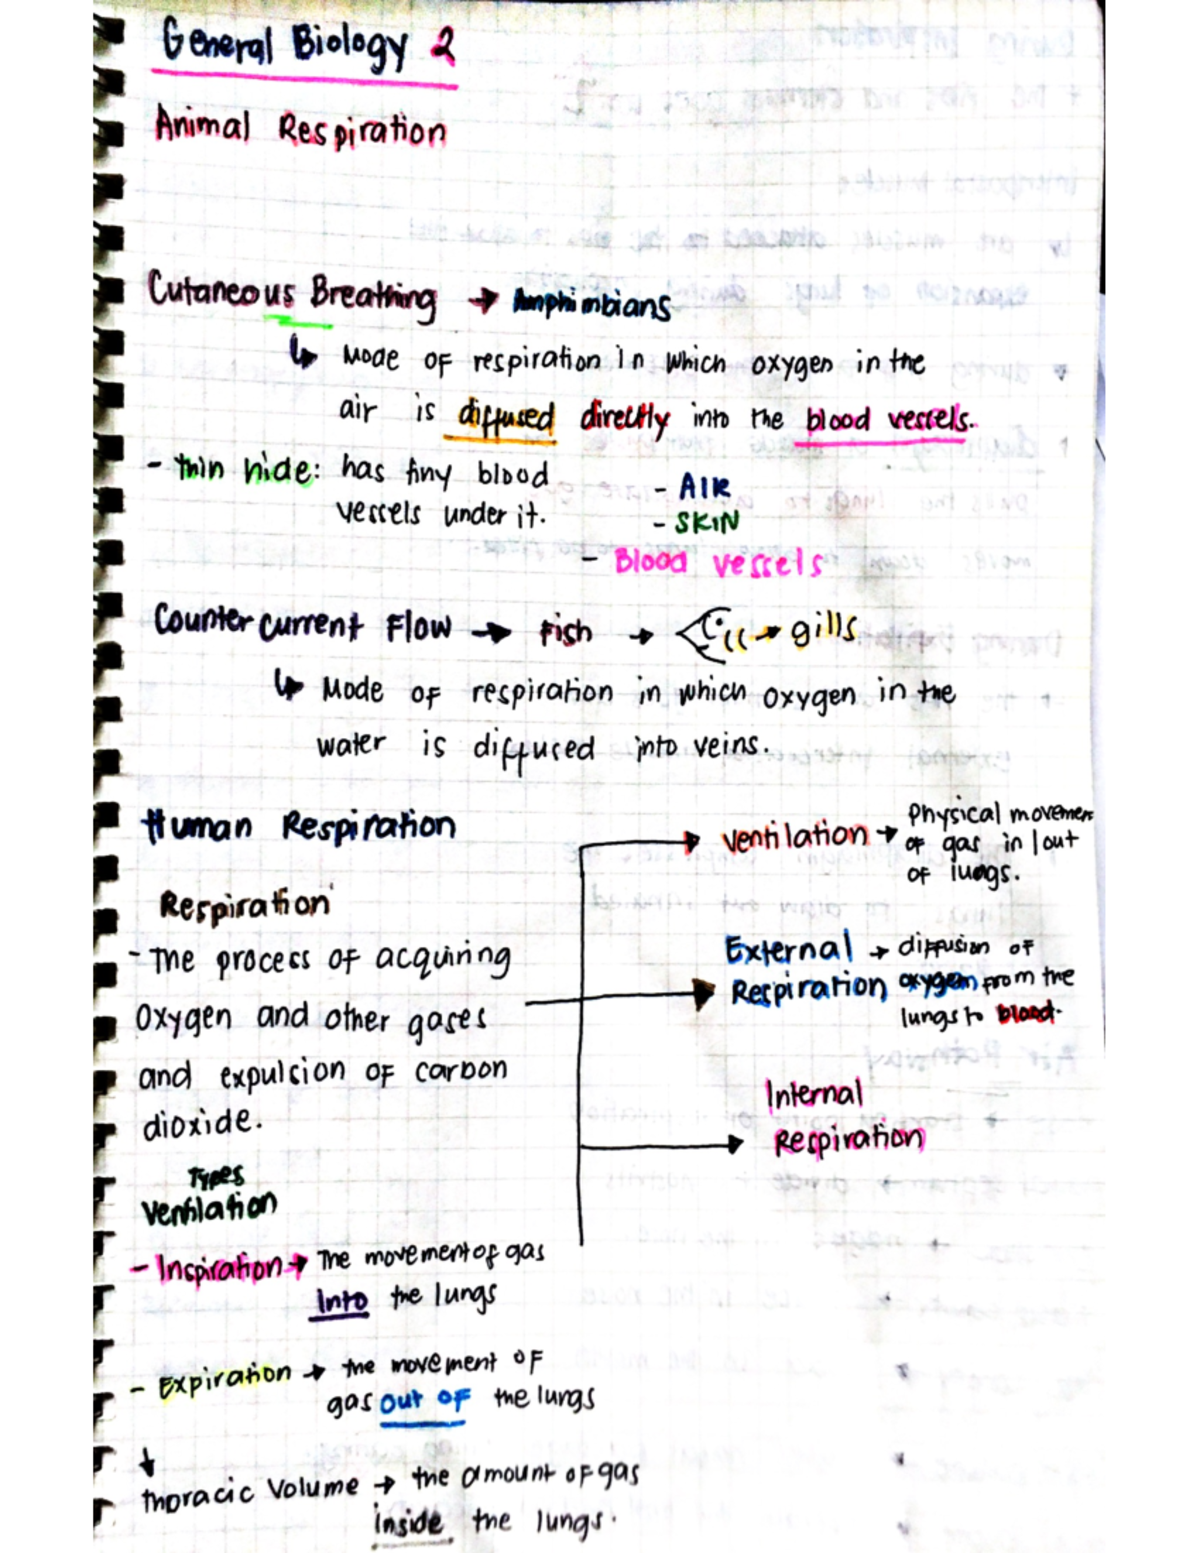 General Biology 2
Animal Respiration
Cutaneous Breathing → Amphimbians
↳ Mode of respiration in which oxygen in the
air is diffused directly into the blood vessels.
- thin hide: has tiny blood
vessels under it.
- AIR
- SKIN
- Blood vessels
Counter current Flow → Fish → → gills
↳ Mode of respiration in which oxygen in the
water is diffused into veins.
Human Respiration
Respiration
- The process of acquiring
oxygen and other gases
and expulsion of carbon
dioxide.
ventilation → Physical movement
of gas in/out
of lungs.
External → diffusion of
Respiration oxygen from the
lungs to blood.
Internal
Respiration
Types
Ventilation
- Inspiration → The movement of gas
Into the lungs
- Expiration → the movement of
gas out of the lungs
↓
thoracic volume → the amount of gas
inside the lungs.